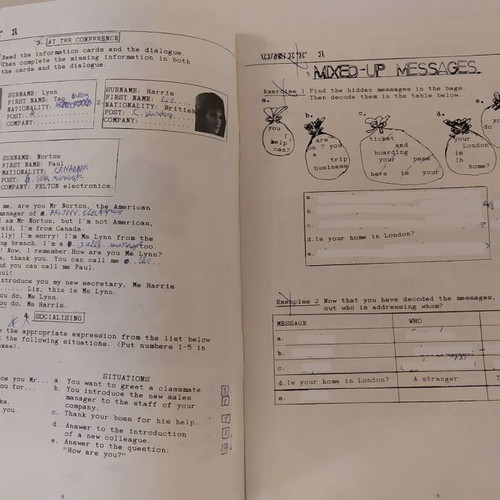 AT THE CONFERENCE
Read the information cards and the dialogue.
Then complete the missing information in both
the cards and the dialogue
SURNAME: Lynn
FIRST NAME:
NATIONALITY:
POST:
COMPANY:
SURNAME: Harris
FIRST NAME: Liz
NATIONALITY: British
POST:
COMPANY:
SURNAME: Norton
FIRST NAME: Paul
NATIONALITY: CANADIAN
POST:
COMPANY: PELTON electronics.
me, are you Mr Norton, the American
manager of
I am Mr Norton, but I'm not American,
said, I'm from Canada
I'm sorry! I'm Ms Lynn from the
ng branch. I'm a sales too.
! Now, I remember. How are you Ms Lynn?
, thank you. You can call me
nd you can call me Paul.
ul!
introduce you my new secretary, Ms Harris
Liz, this is Ms Lynn.
you do, Ms Lynn.
you do, Ms Harris.
4. SOCIALISING
e the appropriate expression from the list below
the following situations. (Put numbers 1-5 in
oxes).
SITUATIONS
ce you Mr...
you for...
k.
you.
a. You want to greet a classmate
b. You introduce the new sales
manager to the staff of your
company.
c. Thank your boss for his help.
d. Answer to the introduction
of a new colleague.
e. Answer to the question:
"How are you?"
MIXED-UP MESSAGES.
Exercise 1 Find the hidden messages in the bags.
Then decode them in the table below.
a.
you
I
help
can?
b.
are
on ? you
a
trip
business
c.
ticket
and
boarding
your pass
here is your
d.
your
London
is
in
home?
e.
do
a.
b.
c.
d.Is your home in London?
e.
Exercise 2 Now that you have decoded the messages,
out who is addressing whom?
MESSAGE
WHO
a.
b.
c.
d.Is your home in London?
A stranger
e.